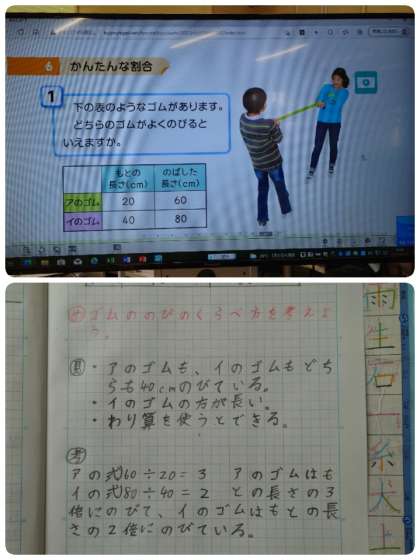 6 かんたんな割合
1
下の表のようなゴムがあります。
どちらのゴムがよくのびると
いえますか。
もとの
長さ(cm)
のばした
長さ(cm)
アのゴム 20 60
イのゴム 40 80
ゴムののびのくらべ方を考えよ
う。
・アのゴムも、イのゴムもどち
らも40cmのびている。
・イのゴムの方が長い。
・わり算を使うとできる。
考
アの式60÷20=3 アのゴムはも
イの式80÷40=2 との長さの3
倍にのびて、イのゴムはもとの長
さの2倍にのびている。
雨
生
石
糸
犬
上